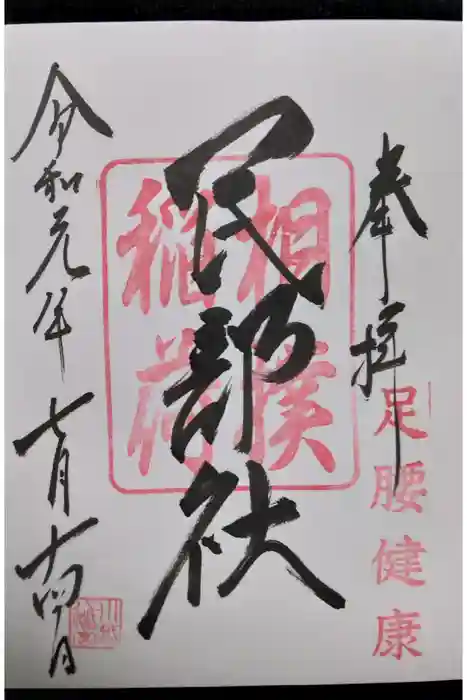 奉拝
足腰健康
民部社
相撲
稲荷
令和元年七月十四日